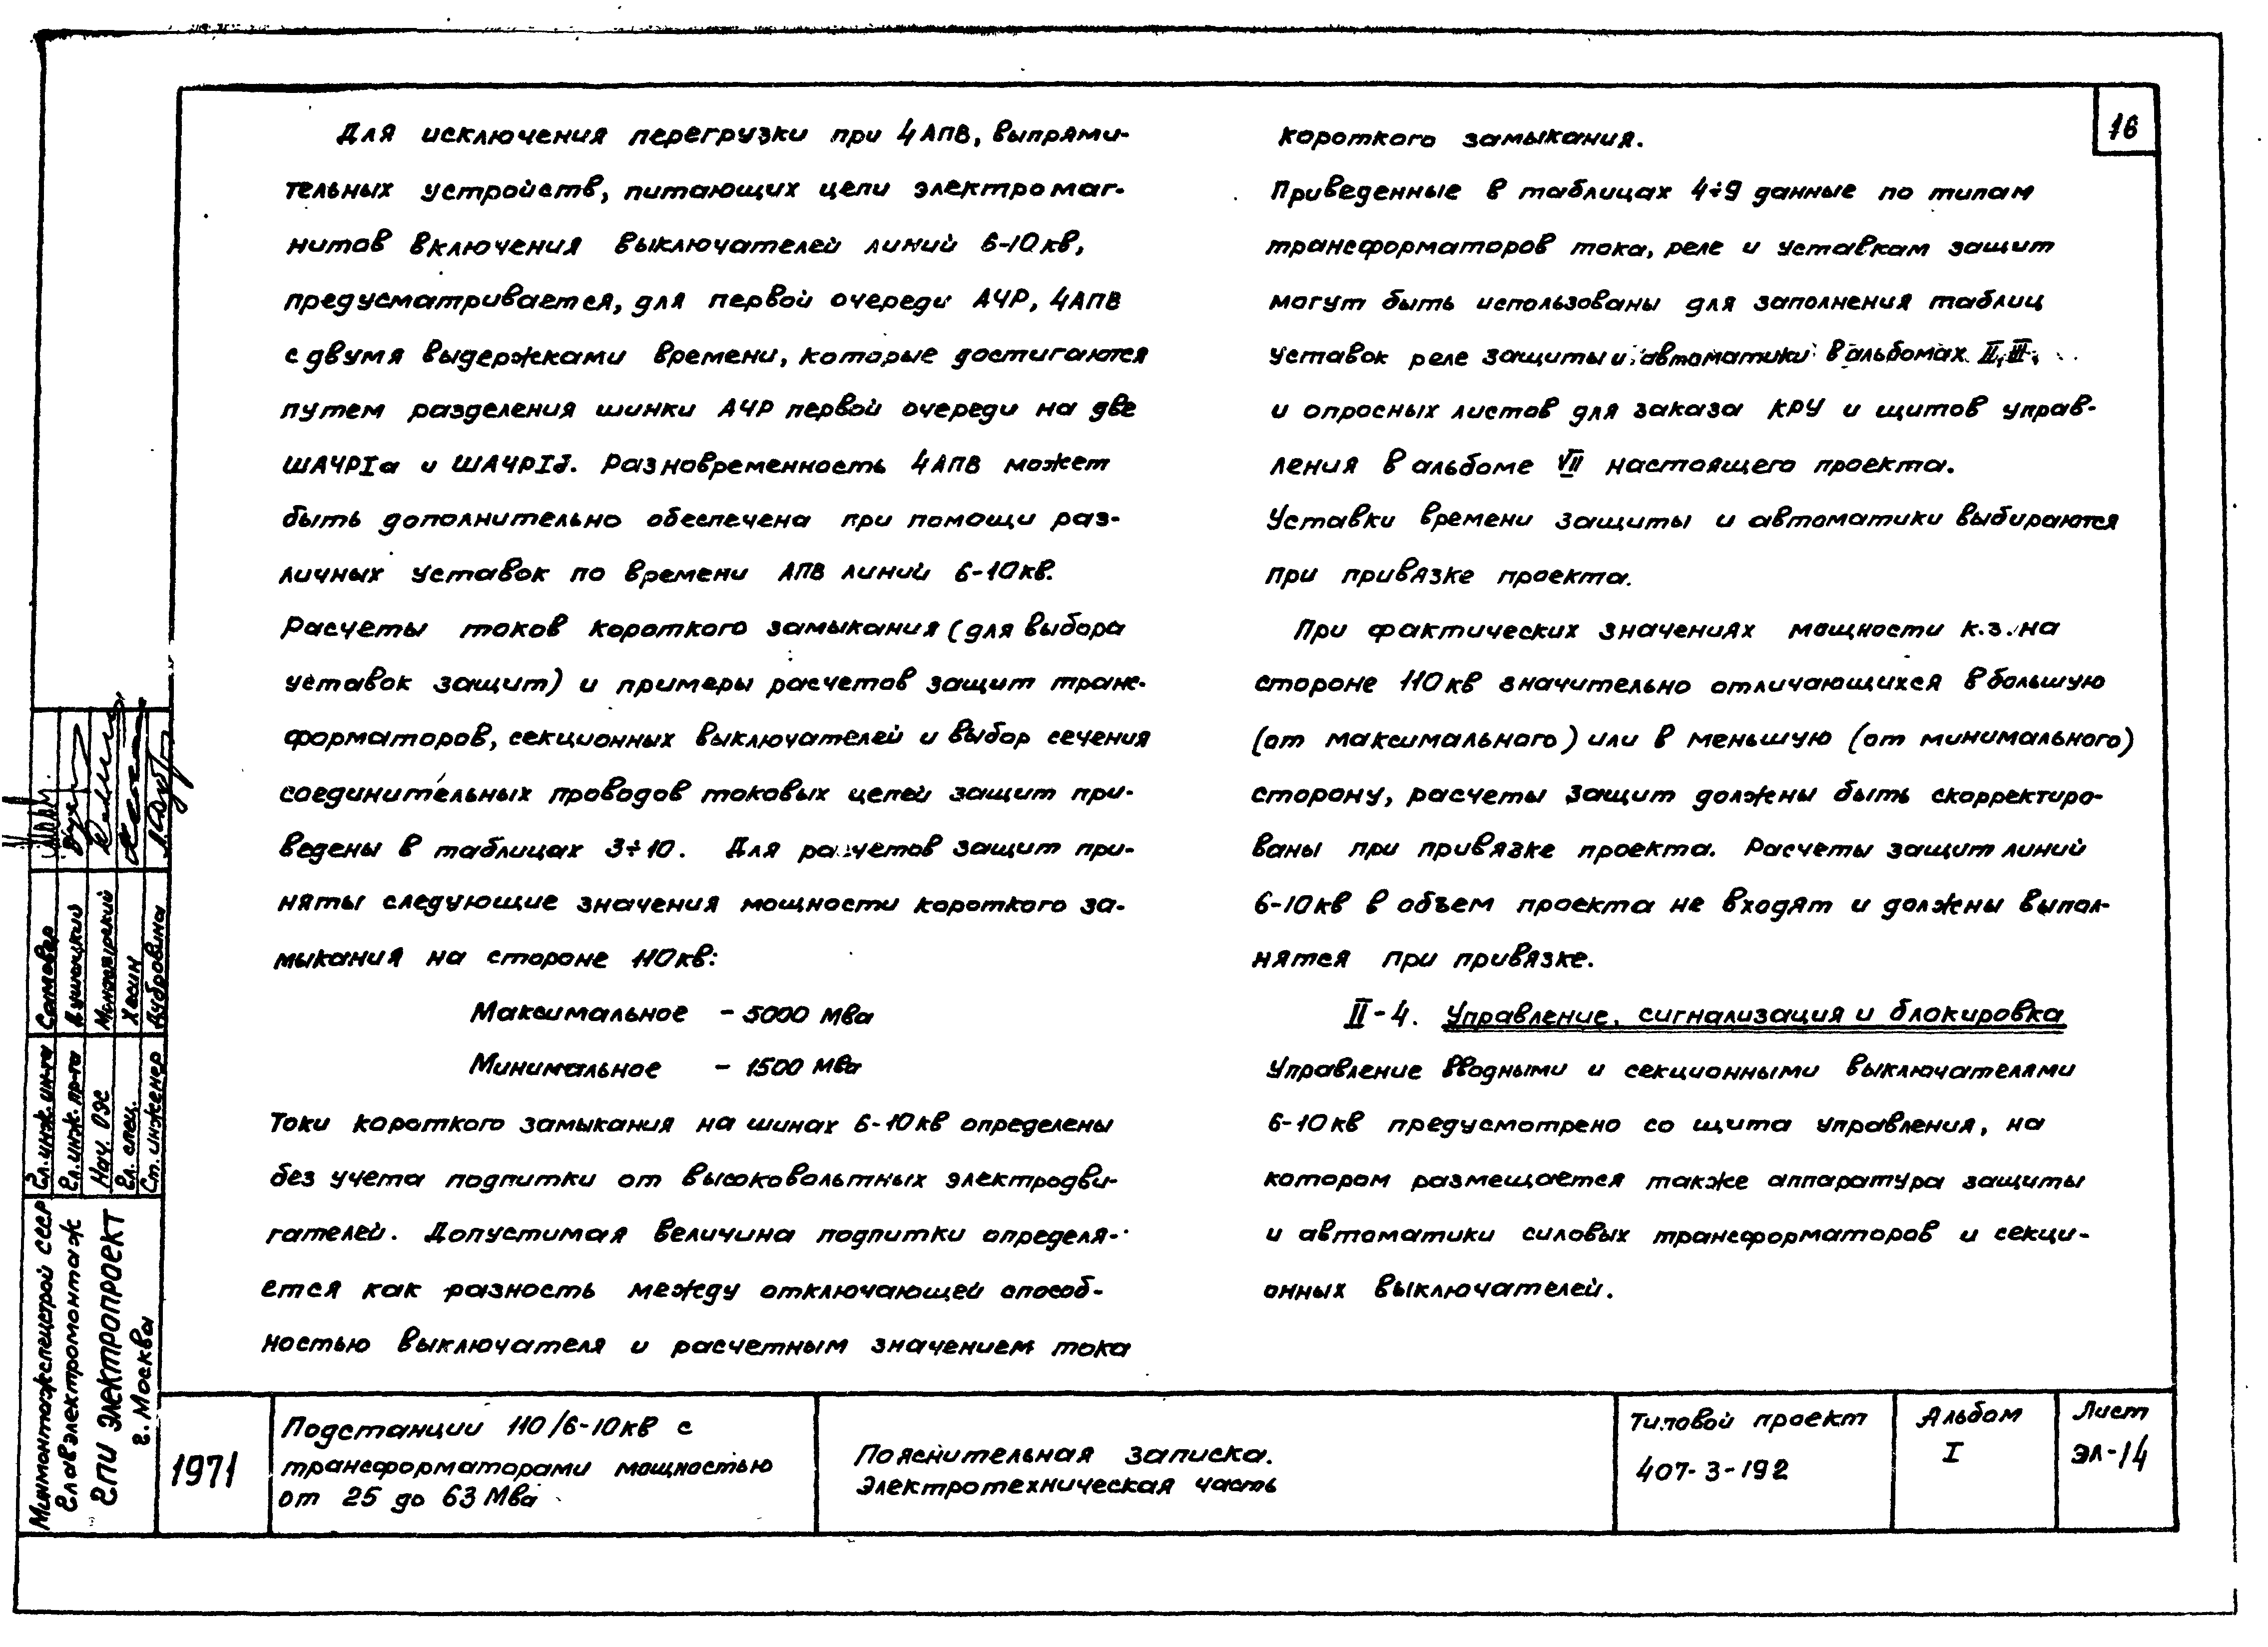 16
Для исключения перегрузки при ЧАПВ, выпрями-
тельных устройств, питающих цепи электромаг-
нитов включения выключателей линий 6-10кв,
предусматривается, для первой очереди АЧР, ЧАПВ
с двумя выдержками времени, которые достигаются
путем разделения шинки АЧР первой очереди на две
ШАЧРIа и ШАЧРIб. Разновременность ЧАПВ может
быть дополнительно обеспечена при помощи раз-
личных уставок по времени АПВ линий 6-10кв.
Расчеты токов короткого замыкания (для выбора
уставок защит) и примеры расчетов защит транс-
форматоров, секционных выключателей и выбор сечения
соединительных проводов токовых цепей защит при-
ведены в таблицах 3÷10. Для расчетов защит при-
няты следующие значения мощности короткого за-
мыкания на стороне 110кв:
Максимальное - 5000 мва
Минимальное - 1500 мва
Токи короткого замыкания на шинах 6-10кв определены
без учета подпитки от высоковольтных электродви-
гателей. Допустимая величина подпитки определя-
ется как разность между отключающей способ-
ностью выключателя и расчетным значением тока
короткого замыкания.
Приведенные в таблицах 4÷9 данные по типам
трансформаторов тока, реле и уставкам защит
могут быть использованы для заполнения таблиц
уставок реле защиты и автоматики в альбомах II, III,
и опросных листов для заказа КРУ и щитов управ-
ления в альбоме VII настоящего проекта.
Уставки времени защиты и автоматики выбираются
при привязке проекта.
При фактических значениях мощности к.з. на
стороне 110кв значительно отличающихся в большую
(от максимального) или в меньшую (от минимального)
сторону, расчеты защит должны быть скорректиро-
ваны при привязке проекта. Расчеты защит линий
6-10кв в объем проекта не входят и должны выпол-
нятся при привязке.
II-4. Управление, сигнализация и блокировка
Управление вводными и секционными выключателями
6-10кв предусмотрено со щита управления, на
котором размещается также аппаратура защиты
и автоматики силовых трансформаторов и секци-
онных выключателей.
Минмонтажспецстрой СССР
Главэлектромонтаж
ГПИ ЭЛЕКТРОПРОЕКТ
г. Москва
Гл. инж. ин-та Самовер
Гл. инж. пр-та
Нач. ОЭС
Гл. спец. Хасин
Ст. инженер Дубровина
1971
Подстанции 110/6-10кв с
трансформаторами мощностью
от 25 до 63 Мва
Пояснительная записка.
Электротехническая часть
Типовой проект
407-3-192
Альбом
I
Лист
ЭЛ-14